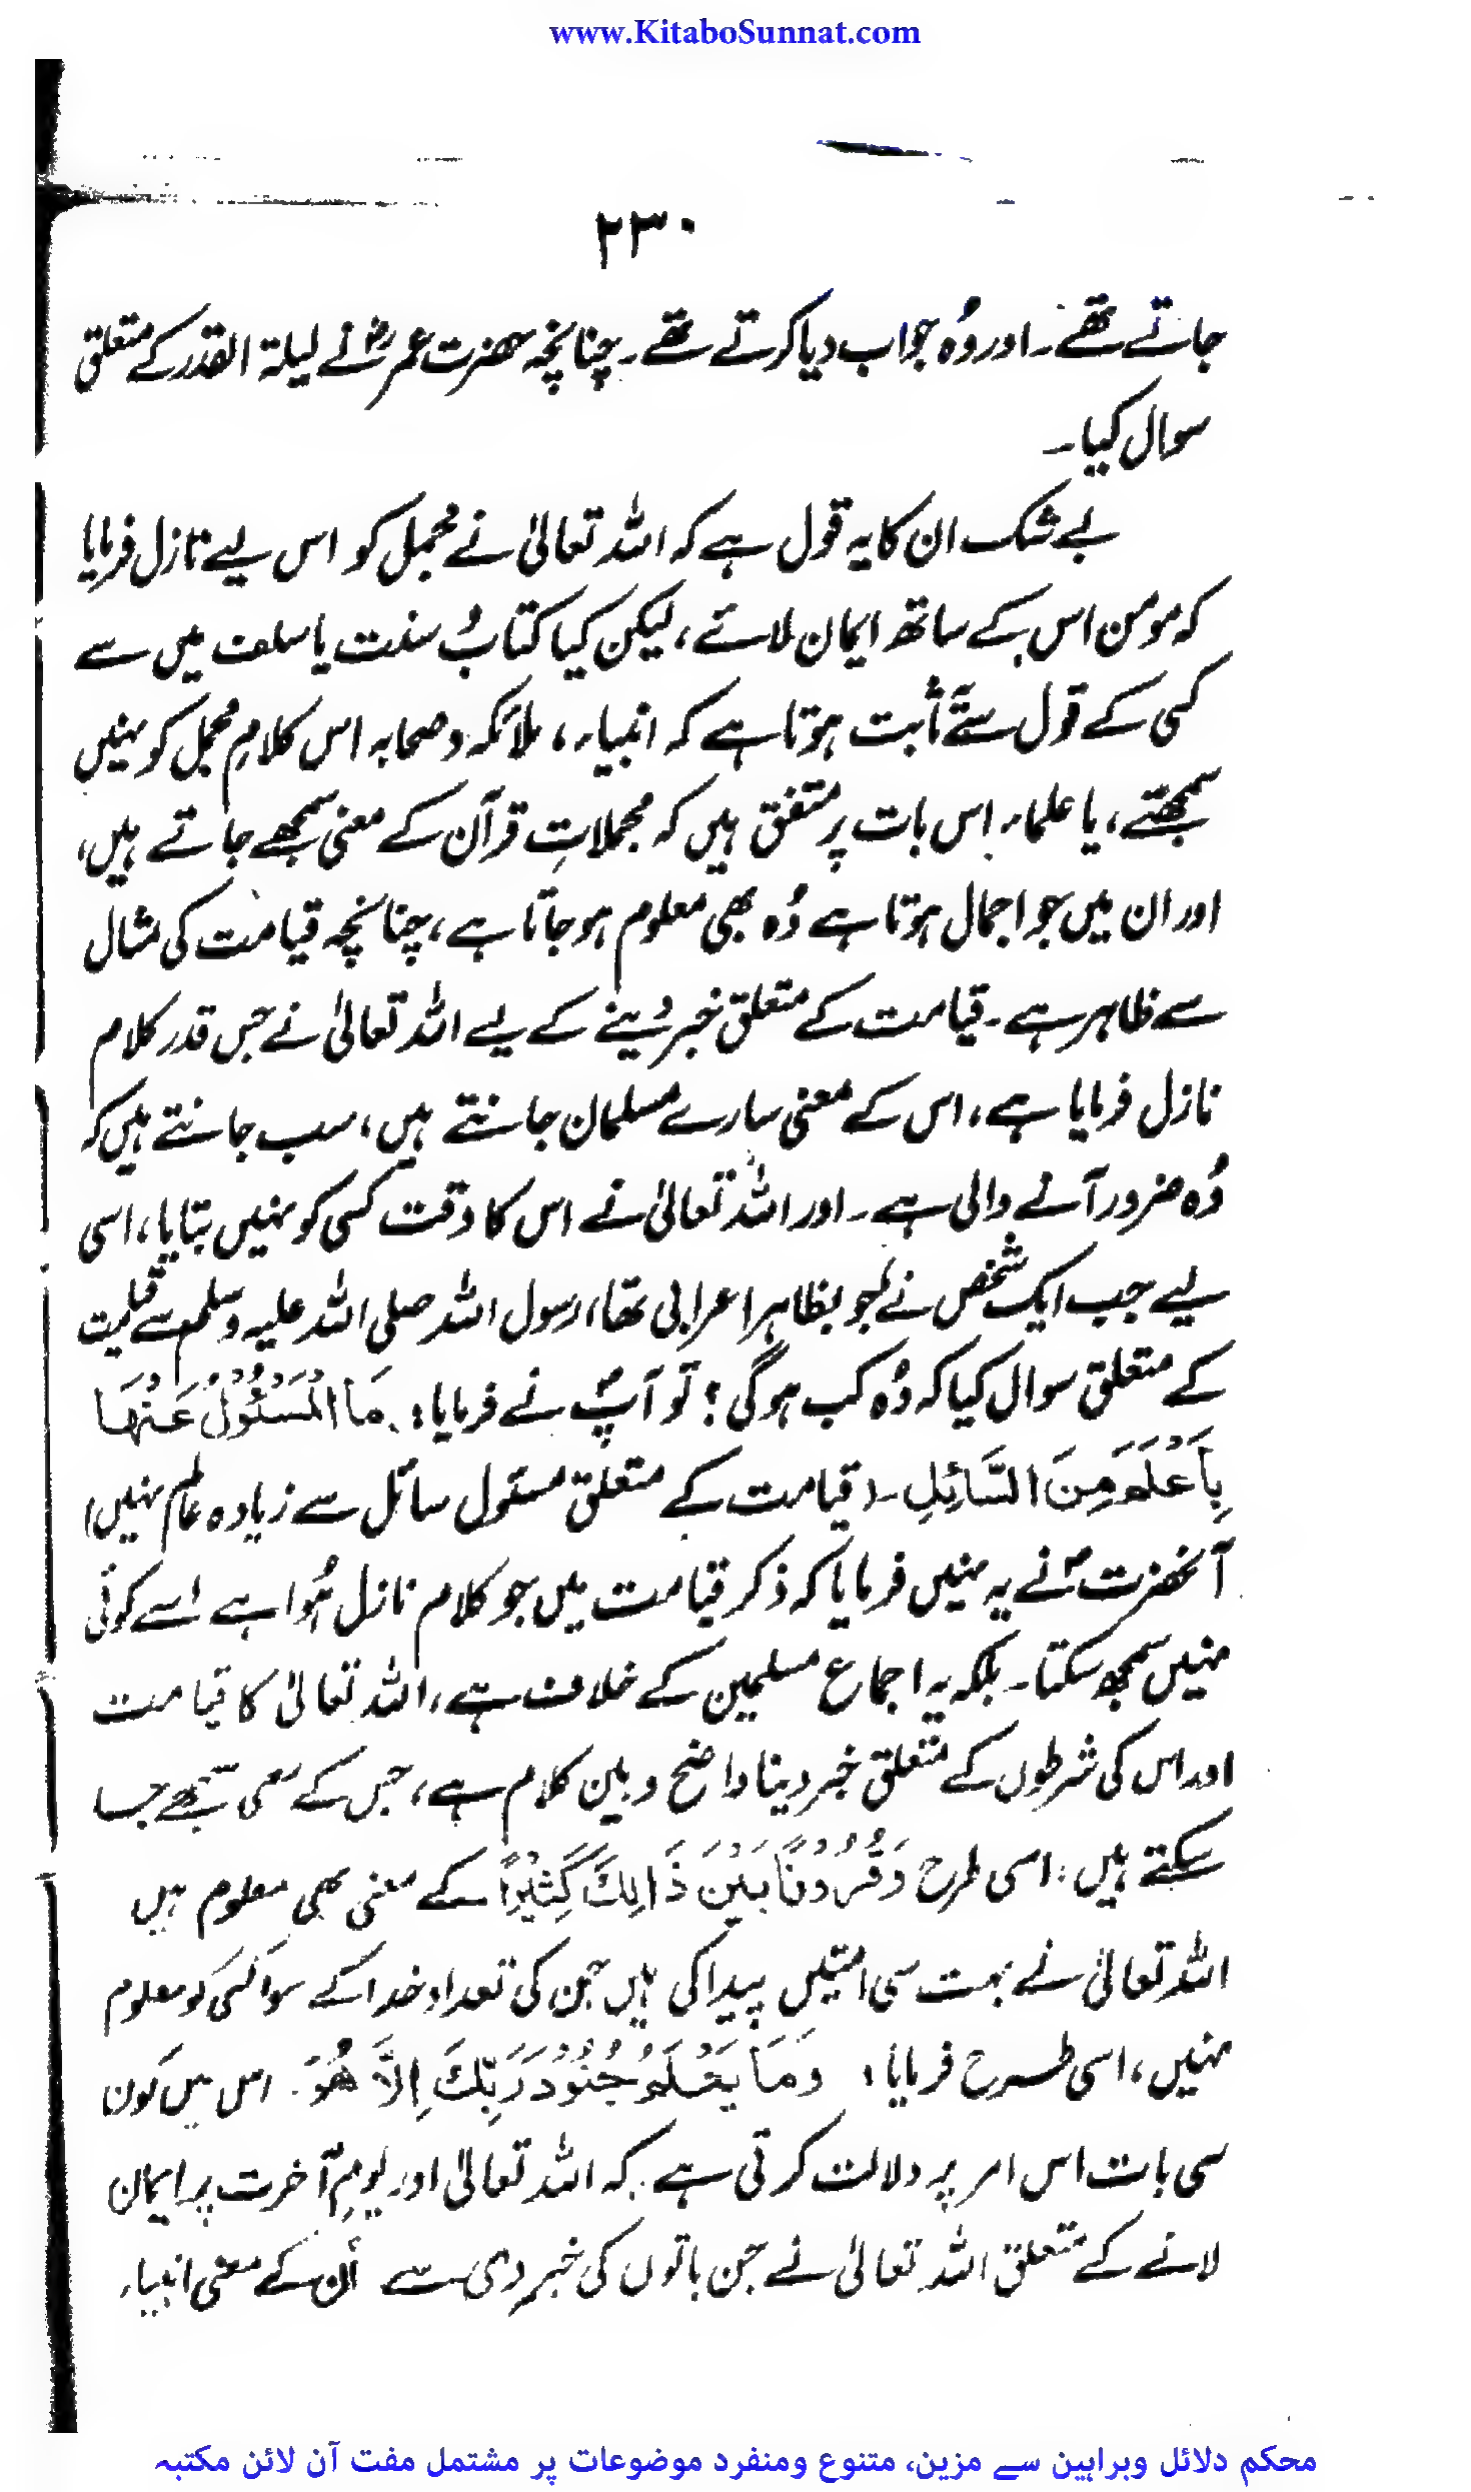 www.KitaboSunnat.com
۲۳۰
جاتے تھے۔ اور وُہ جواب دیا کرتے تھے۔ چنانچہ حضرت عمرؓ نے لیلۃ القدر کے متعلق
سوال کیا۔
بے شک ان کا یہ قول ہے کہ اللہ تعالیٰ نے مجمل کو اس لیے نازل فرمایا
کہ مومن اس کے ساتھ ایمان لائے، لیکن کیا کتابُ سنت یا سلف میں سے
کسی کے قول سے ثابت ہوتا ہے کہ انبیاء، ملائکہ و صحابہ اس کلامِ مجمل کو نہیں
سمجھتے، یا علماء اس بات پر متفق ہیں کہ مجملاتِ قرآن کے معنی سمجھے جاتے ہیں،
اور ان میں جو اجمال ہوتا ہے وُہ بھی معلوم ہو جاتا ہے، چنانچہ قیامت کی مثال
سے ظاہر ہے۔ قیامت کے متعلق خبر دینے کے لیے اللہ تعالیٰ نے جس قدر کلام
نازل فرمایا ہے، اس کے معنی سارے مسلمان جانتے ہیں، سب جانتے ہیں کہ
وُہ ضرور آنے والی ہے۔ اور اللہ تعالیٰ نے اس کا وقت کسی کو نہیں بتایا، اسی
لیے جب ایک شخص نے (جو بظاہر اعرابی تھا) رسول اللہ صلی اللہ علیہ وسلم سے قیامت
کے متعلق سوال کیا کہ وُہ کب ہوگی؟ تو آپؐ نے فرمایا: مَا الْمَسْئُوْلُ عَنْهَا
بِاَعْلَمَ مِنَ السَّائِلِ۔ (قیامت کے متعلق مسئول سائل سے زیادہ عالم نہیں)
آنحضرتؐ نے یہ نہیں فرمایا کہ ذکر قیامت میں جو کلام نازل ہُوا ہے اسے کوئی
نہیں سمجھ سکتا۔ بلکہ یہ اجماع مسلمین کے خلاف ہے، اللہ تعالیٰ کا قیامت
اور اس کی شرطوں کے متعلق خبر دینا واضح و بین کلام ہے، جس کے معنی سمجھے جا
سکتے ہیں، اسی طرح وَقُرُوْنًا بَيْنَ ذَالِكَ كَثِيْرًا کے معنی بھی معلوم ہیں
اللہ تعالیٰ نے بہت سی امتیں پیدا کی ہیں جن کی تعداد خدا کے سوا کسی کو معلوم
نہیں، اسی طرح فرمایا: وَمَا يَعْلَمُ جُنُوْدَ رَبِّكَ اِلَّا هُوَ۔ اس میں کون
سی بات اس امر پر دلالت کرتی ہے کہ اللہ تعالیٰ اور یومِ آخرت پر ایمان
لانے کے متعلق اللہ تعالیٰ نے جن باتوں کی خبر دی ہے اُن کے معنی انبیاء
محکم دلائل وبراہین سے مزین، متنوع ومنفرد موضوعات پر مشتمل مفت آن لائن مکتبہ